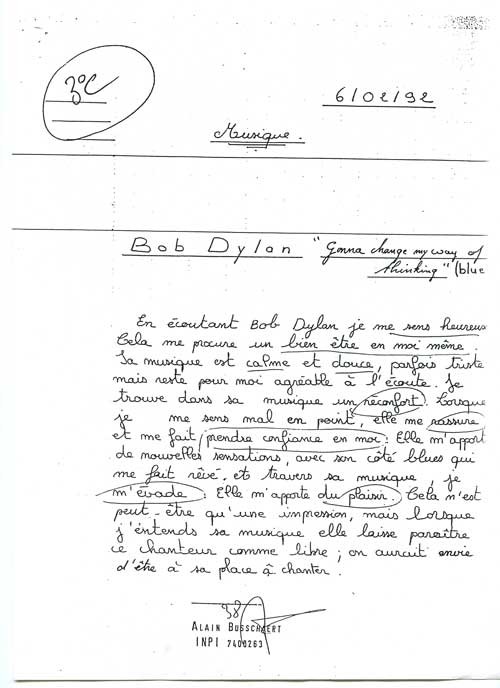 3°C
6/02/92
Musique.
Bob Dylan "Gonna change my way of
thinking" (blue
En écoutant Bob Dylan je me sens heureus
Cela me procure un bien être en moi même.
Sa musique est calme et douce, parfois triste
mais reste pour moi agréable à l'écoute. Je
trouve dans sa musique un réconfort. Lorsque
je me sens mal en point, elle me rassure
et me fait prendre confiance en moi. Elle m'apport
de nouvelles sensations, avec son côté blues qui
me fait rêvé, et travers sa musique, je
m'évade. Elle m'apporte du plaisir. Cela n'est
peut-être qu'une impression, mais lorsque
j'éntends sa musique elle laisse paraître
ce chanteur comme libre ; on aurait envie
d'être à sa place à chanter.
38
ALAIN BUSSCHAERT
INPI 7400263